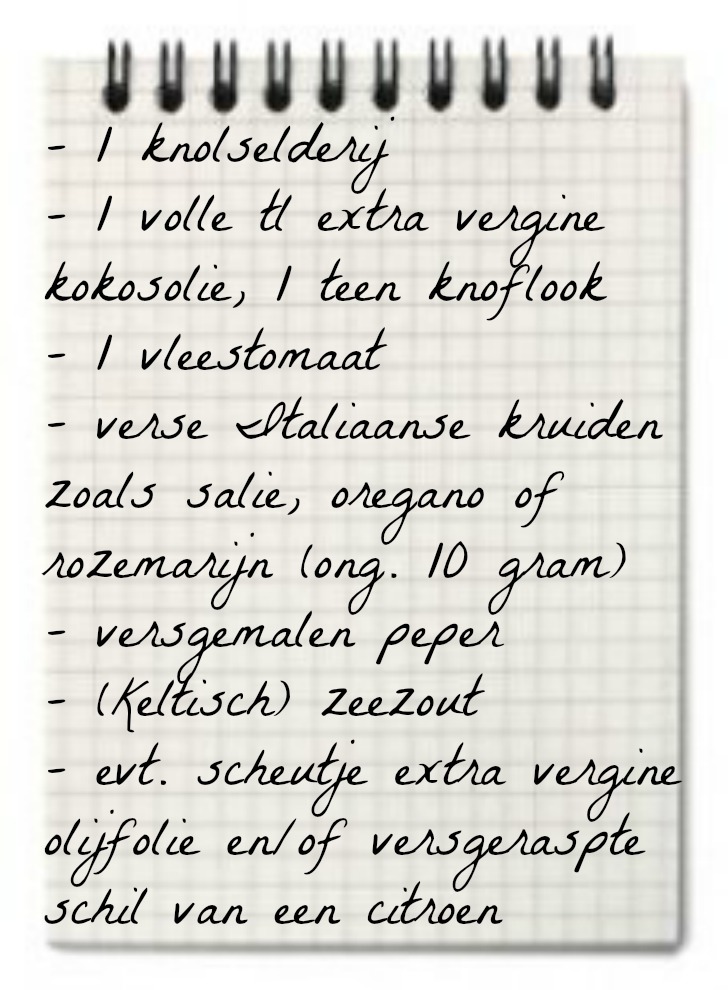 - 1 knolselderij
- 1 volle tl extra vergine
kokosolie, 1 teen knoflook
- 1 vleestomaat
- verse Italiaanse kruiden
zoals salie, oregano of
rozemarijn (ong. 10 gram)
- versgemalen peper
- (Keltisch) zeezout
- evt. scheutje extra vergine
olijfolie en/of versgeraspte
schil van een citroen